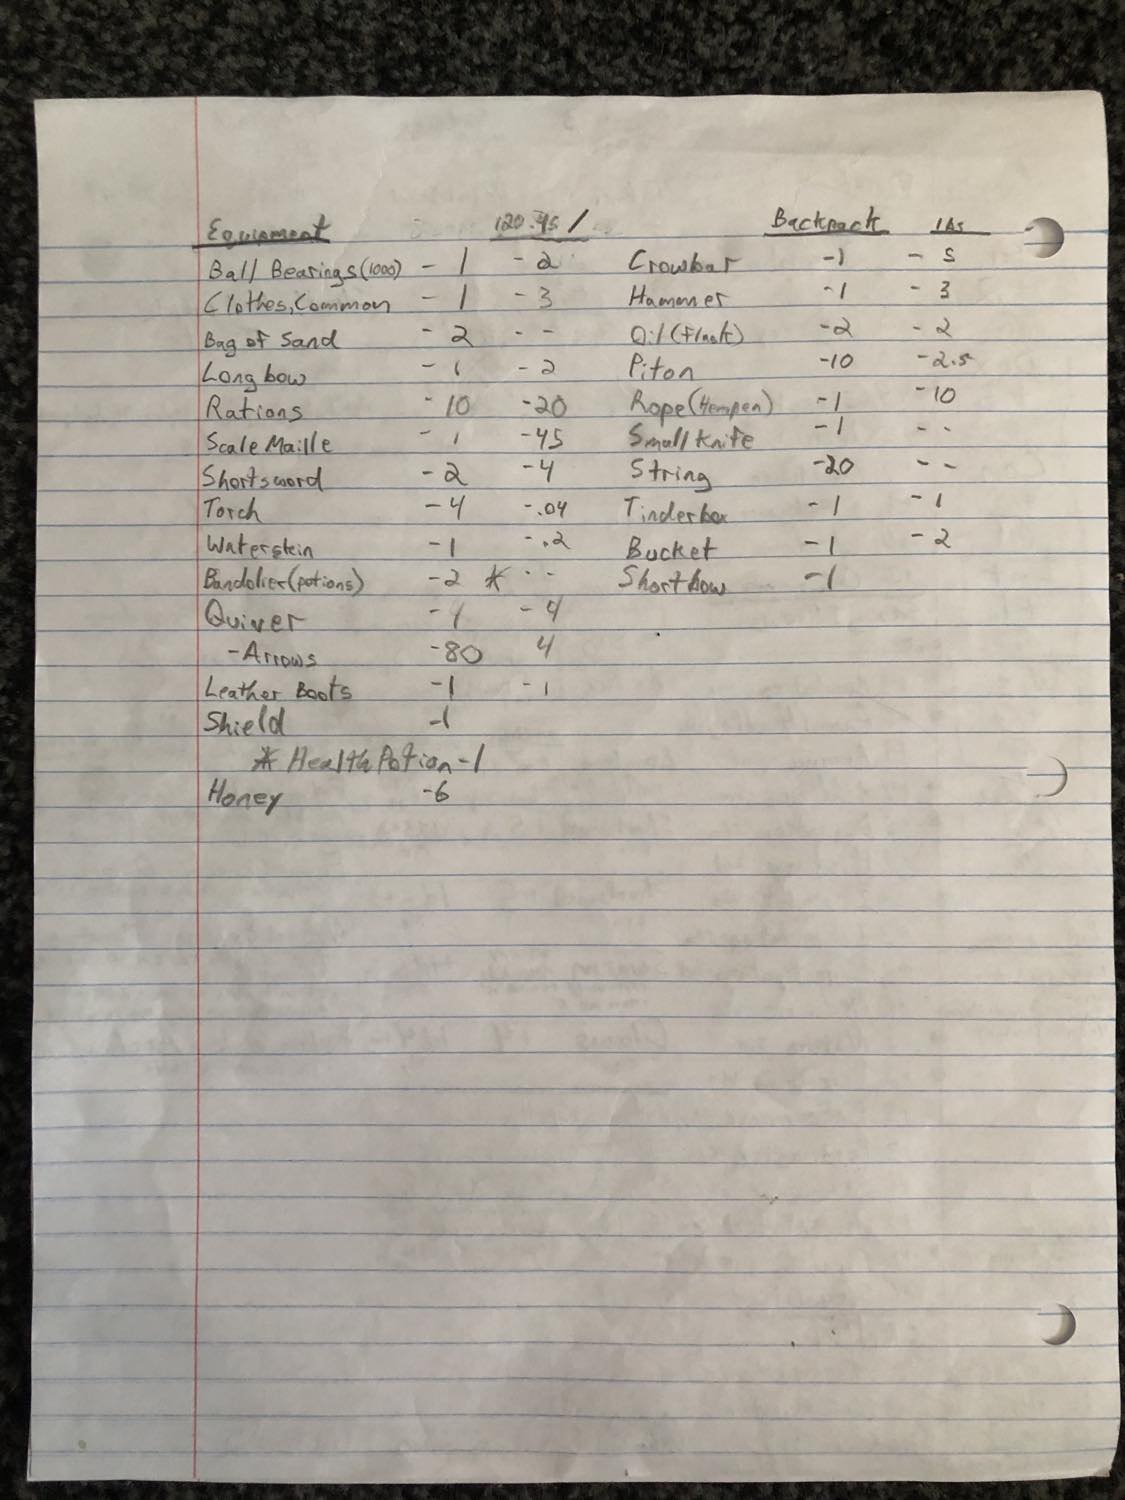 Equipment 120.45 /
Ball Bearings(1000) - 1 - 2
Clothes, Common - 1 - 3
Bag of Sand - 2 - -
Longbow - 1 - 2
Rations - 10 - 20
Scale Maille - 1 - 45
Shortsword - 2 - 4
Torch - 4 - .04
Waterskin - 1 - .2
Bandolier(potions) - 2 * - -
Quiver - 1 - 4
- Arrows - 80 4
Leather Boots - 1 - 1
Shield - 1
* Health Potion - 1
Honey - 6
Backpack lbs
Crowbar - 1 - 5
Hammer - 1 - 3
Oil (flask) - 2 - 2
Piton - 10 - 2.5
Rope (Hempen) - 1 - 10
Small Knife - 1 - -
String - 20 - -
Tinderbox - 1 - 1
Bucket - 1 - 2
Shortbow - 1